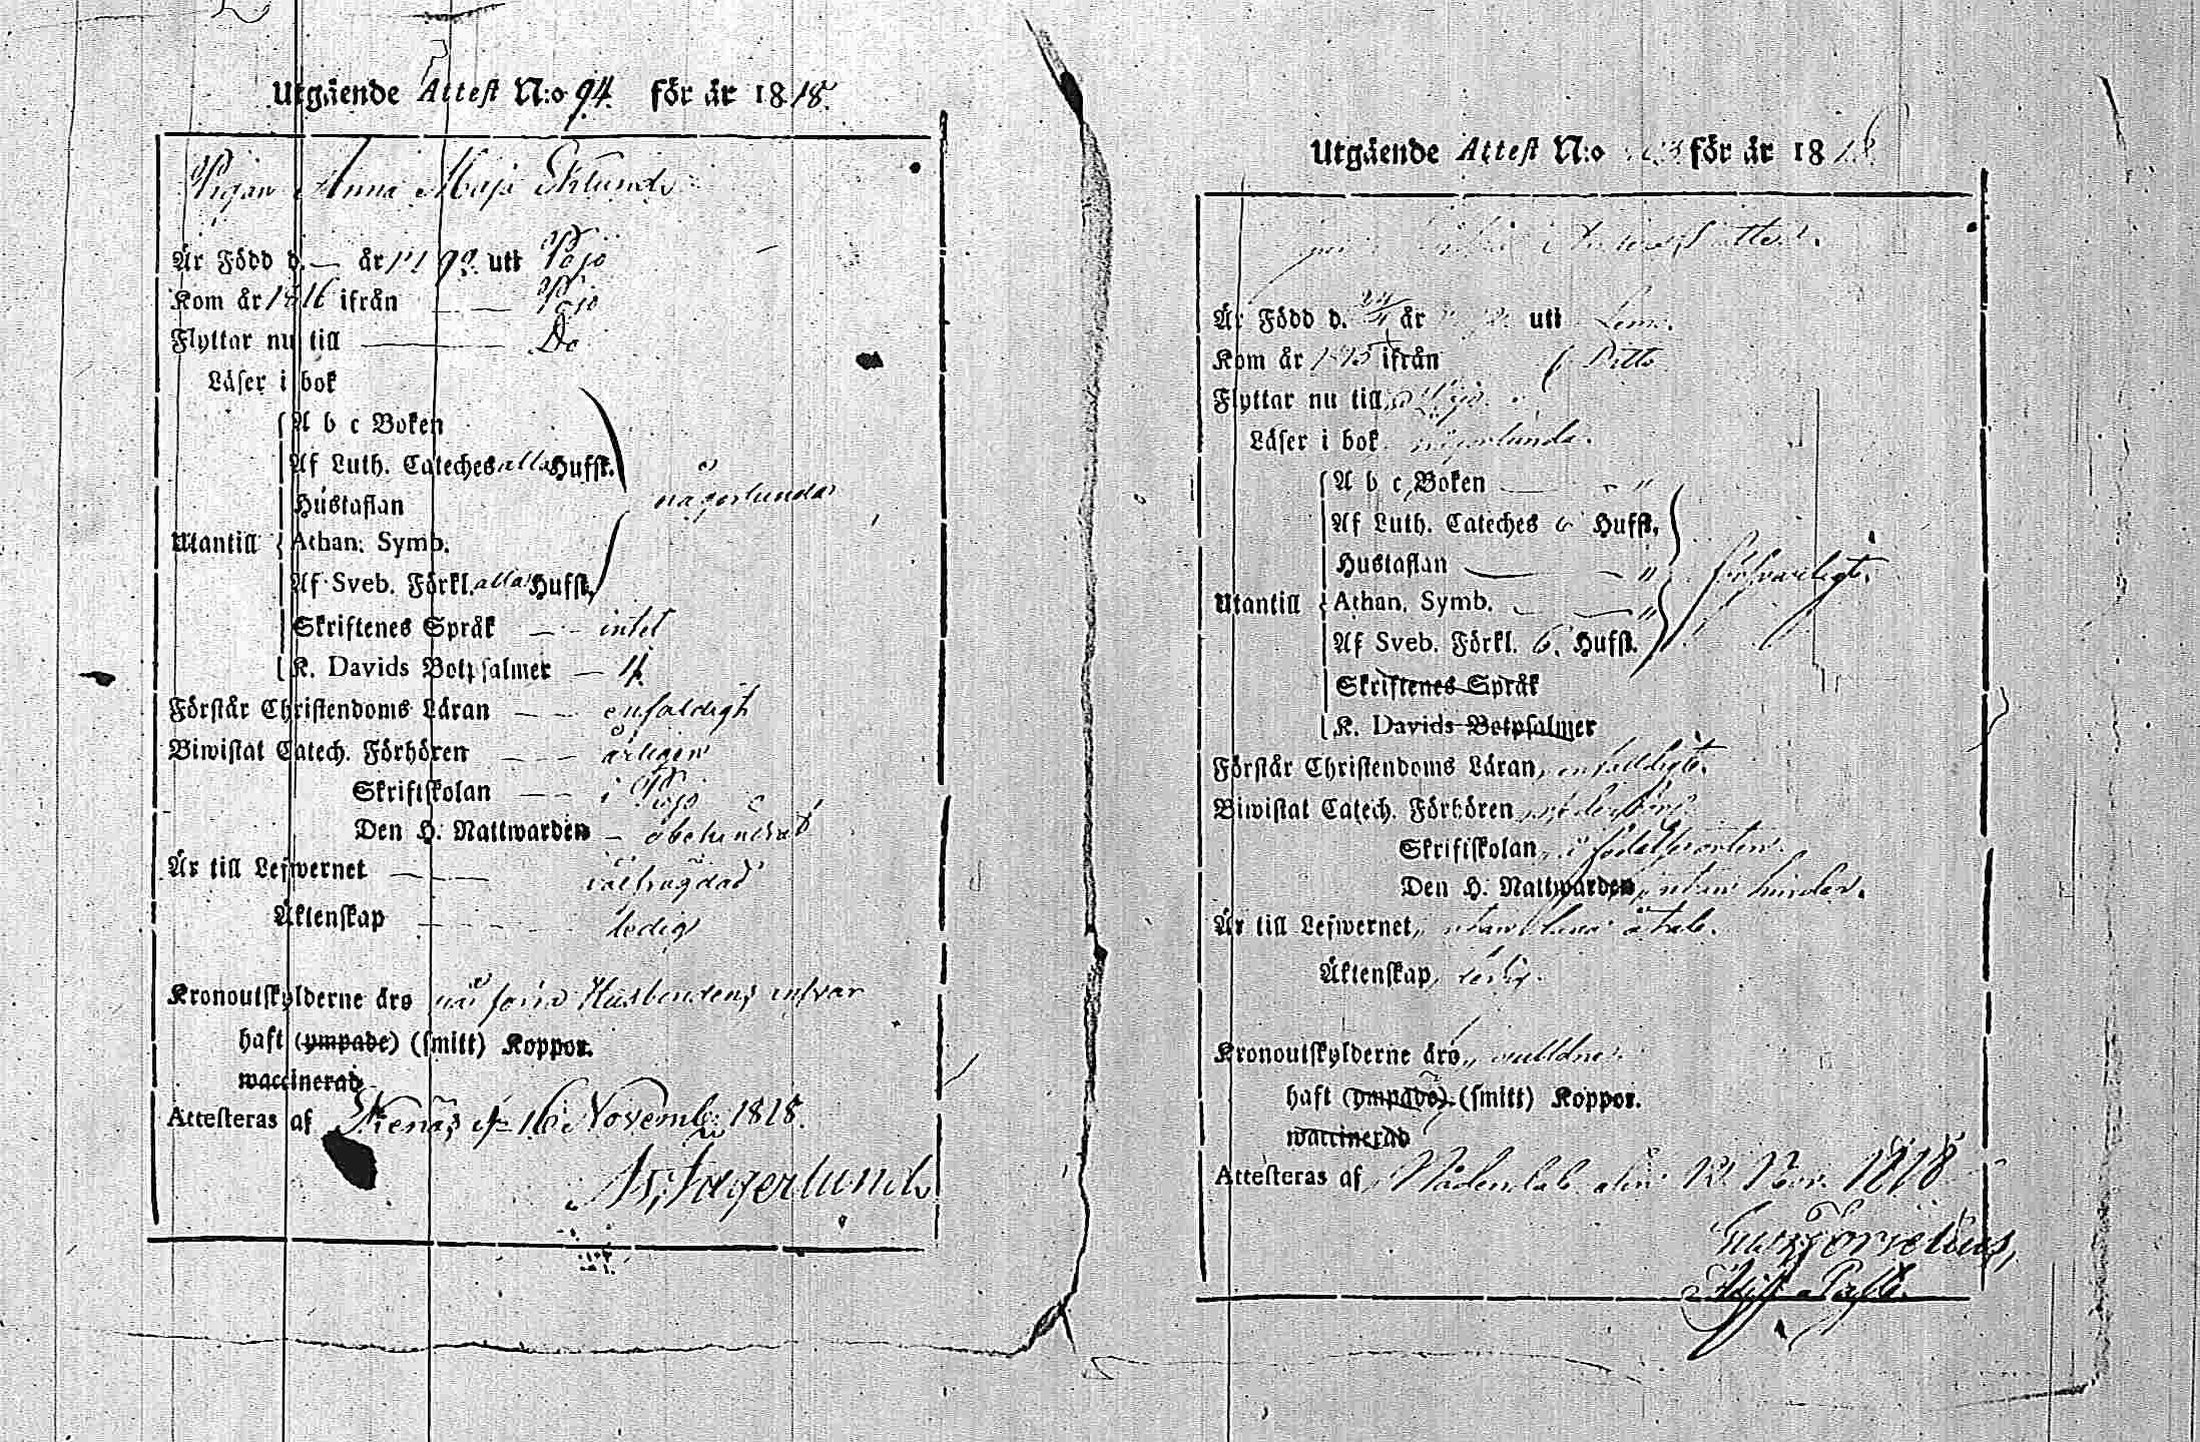 Utgående Attest N:o 94. för år 1818.
Pigan Anna Maja Eklund
Är Född d. — år 1798. uti Pojo
Kom år 1816 ifrån — Pojo
Flyttar nu till — Do
Läser i bok
A b c Boken
Af Luth. Cateches alla Hufst.
Hustaflan
någorlunda
Utantill
Athan. Symb.
Af Sveb. Förkl. alla Hufst.
Skriftenes Språk — intet
K. Davids Botpsalmer — 4.
Förstår Christendoms Läran — enfaldigt
Biwistat Catech. Förhören — årligen
Skriftskolan — i Pojo
Den H. Nattwarden — obehindrad
Är till Lefwernet — välfrägdad
Äktenskap — ledig
Kronoutskylderne äro Husbondens
haft (ympade) (smitt) Koppor.
waccinerad
Attesteras af Ekenäs d. 16 Novemb: 1818.
Fagerlund
Utgående Attest N:o för år 1818.
Andersdotter.
Är Född d. 24 år uti Lemo.
Kom år 1815 ifrån Ditto
Flyttar nu till
Läser i bok någorlunda.
A b c Boken — "
Af Luth. Cateches 6 Hufst.
Hustaflan — "
försvarligt.
Utantill
Athan. Symb. — "
Af Sveb. Förkl. 6. Hufst.
Skriftenes Språk
K. Davids Botpsalmer
Förstår Christendoms Läran, enfalldigt.
Biwistat Catech. Förhören,
Skriftskolan, i födelseorten.
Den H. Nattwarden, utan hinder.
Är till Lefwernet, utan åtal.
Äktenskap, ledig.
Kronoutskylderne äro,
haft (ympade) (smitt) Koppor.
waccinerad
Attesteras af Nådendal den 12 Nov. 1818